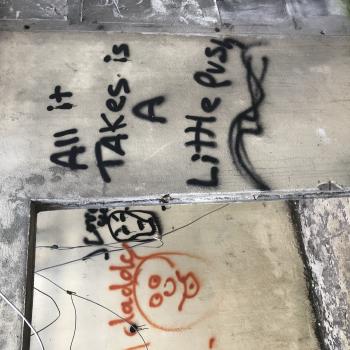 All it
TAKes is
A
LittLe Push
Love
daddy